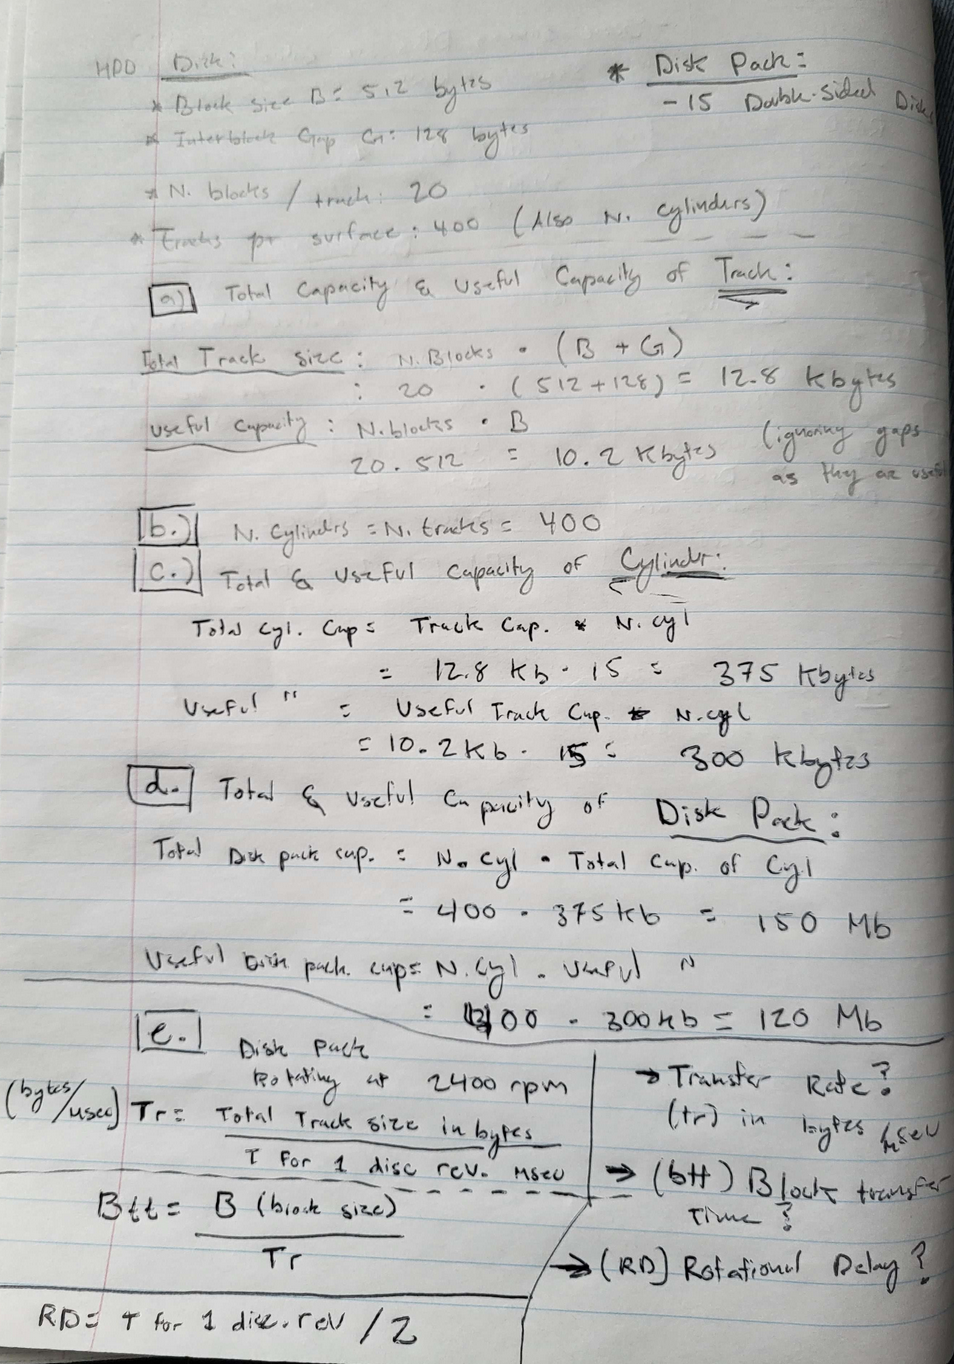 HDD Disk:
* Block size B= 512 bytes
* Interblock Gap G: 128 bytes
* N. blocks / track: 20
* Tracks pr surface: 400 (Also N. cylinders)
* Disk Pack:
- 15 Double-Sided Disks
a) Total Capacity & Useful Capacity of Track:
Total Track size: N.Blocks • (B + G)
: 20 • (512+128) = 12.8 Kbytes
Useful Capacity: N.blocks • B
20.512 = 10.2 Kbytes (ignoring gaps
as they are
b.) N. Cylindrs = N. tracks = 400
c.) Total & Useful Capacity of Cylindr:
Total Cyl. Cap = Track Cap. * N. cyl
= 12.8 Kb • 15 = 375 Kbytes
Useful " = Useful Track Cap. * N. cyl
= 10.2Kb • 15 = 300 Kbytes
d. Total & Useful Capacity of Disk Pack:
Total Disk pack cap. = N. Cyl • Total Cap. of Cyl
= 400 • 375 kb = 150 Mb
Useful Disk pack. cap= N. Cyl • Useful "
= 400 • 300kb = 120 Mb
e. Disk Pack
Rotating at 2400 rpm
(bytes/msec) Tr = Total Track size in bytes
T for 1 disc rev. msec
Btt = B (block size)
Tr
RD = T for 1 disc. rev / 2
→ Transfer Rate?
(tr) in bytes/msec
→ (btt) Block transfer
Time?
→ (RD) Rotational Delay?